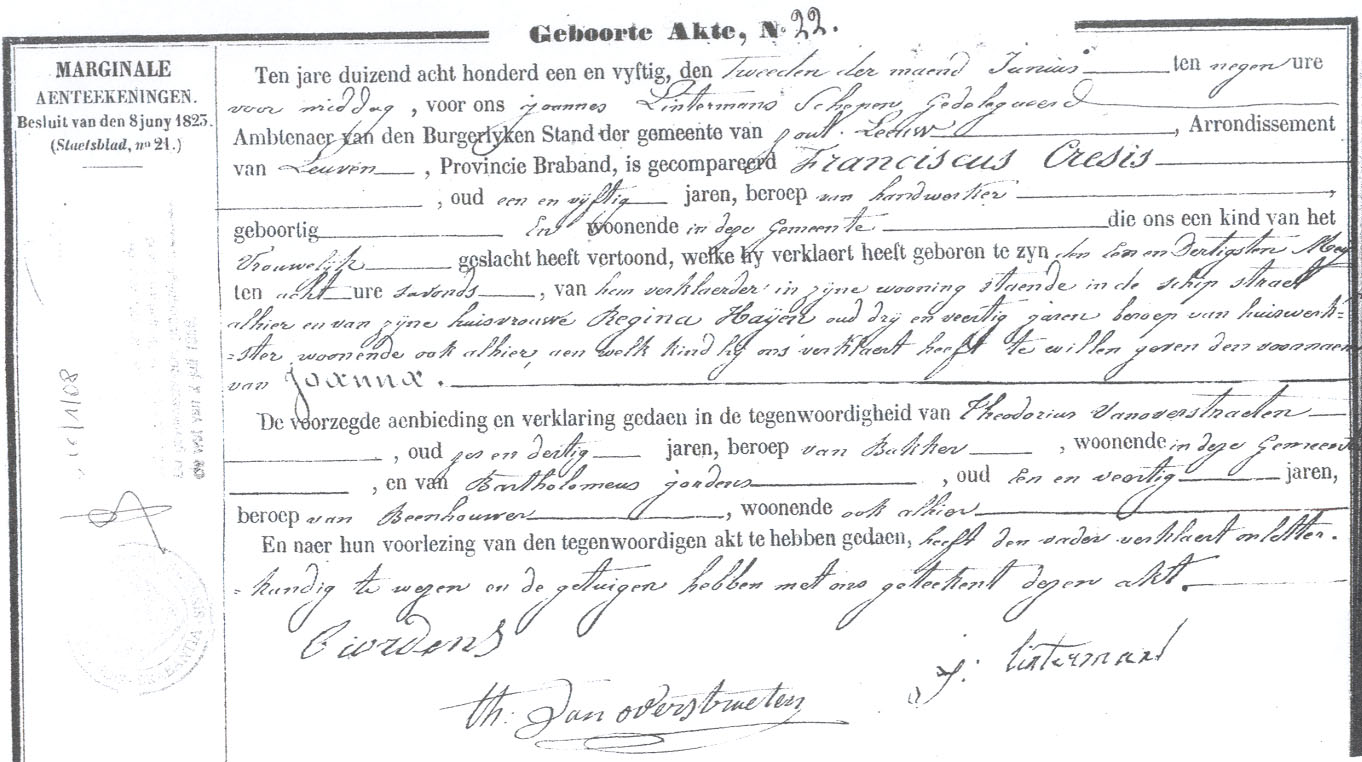 Geboorte Akte, N. 22.
MARGINALE
AENTEEKENINGEN.
Besluit van den 8 juny 1823.
(Staetsblad, no 21.)
Ten jare duizend acht honderd een en vyftig, den Tweeden der maend Junius ten negen ure
voor middag, voor ons joannes Lintermans Schepen, Gedelegueerd
Ambtenaer van den Burgerlyken Stand der gemeente van zout-Leeuw, Arrondissement
van Leuven, Provincie Braband, is gecompareerd Franciscus Cresis
, oud een en vyftig jaren, beroep van handwerker,
geboortig En woonende in deze Gemeente die ons een kind van het
Vrouwelijk geslacht heeft vertoond, welke hy verklaert heeft geboren te zyn den Een en Dertigsten Mey
ten acht ure savonds, van hem verklaerder in zyne wooning staende in de schip straet
alhier en van zyne huisvrouwe Regina Hayen oud dry en veertig jaren beroep van huiswerk=
=ster, woonende ook alhier, aen welk kind hy ons verklaert heeft te willen geven den voornaem
van Joanna.
De voorzegde aenbieding en verklaring gedaen in de tegenwoordigheid van Theodorius Vanoverstraeten
, oud zes en dertig jaren, beroep van Bakker, woonende in deze Gemeente
, en van Bartholomeus jordens, oud Een en veertig jaren,
beroep van Beenhouwer, woonende ook alhier
En naer hun voorlezing van den tegenwoordigen akt te hebben gedaen, heeft den vader verklaert onletter=
=kundig te wezen en de getuigen hebben met ons geteekent dezen akt.
Giordens
j: lintermans
th: Van overstraeten